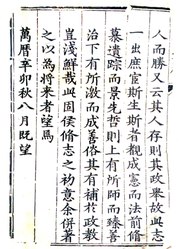 人而勝又云其人存則其政舉故此志
一出庶宦斯土者觀成憲而法前脩
慕遺踪而景先哲則上有所師而臻善
治下有所激而成善俗其有補於政教
豈淺鮮哉此固侯脩志之初意余併著
之以為將來者望焉
萬曆辛卯秋八月既望